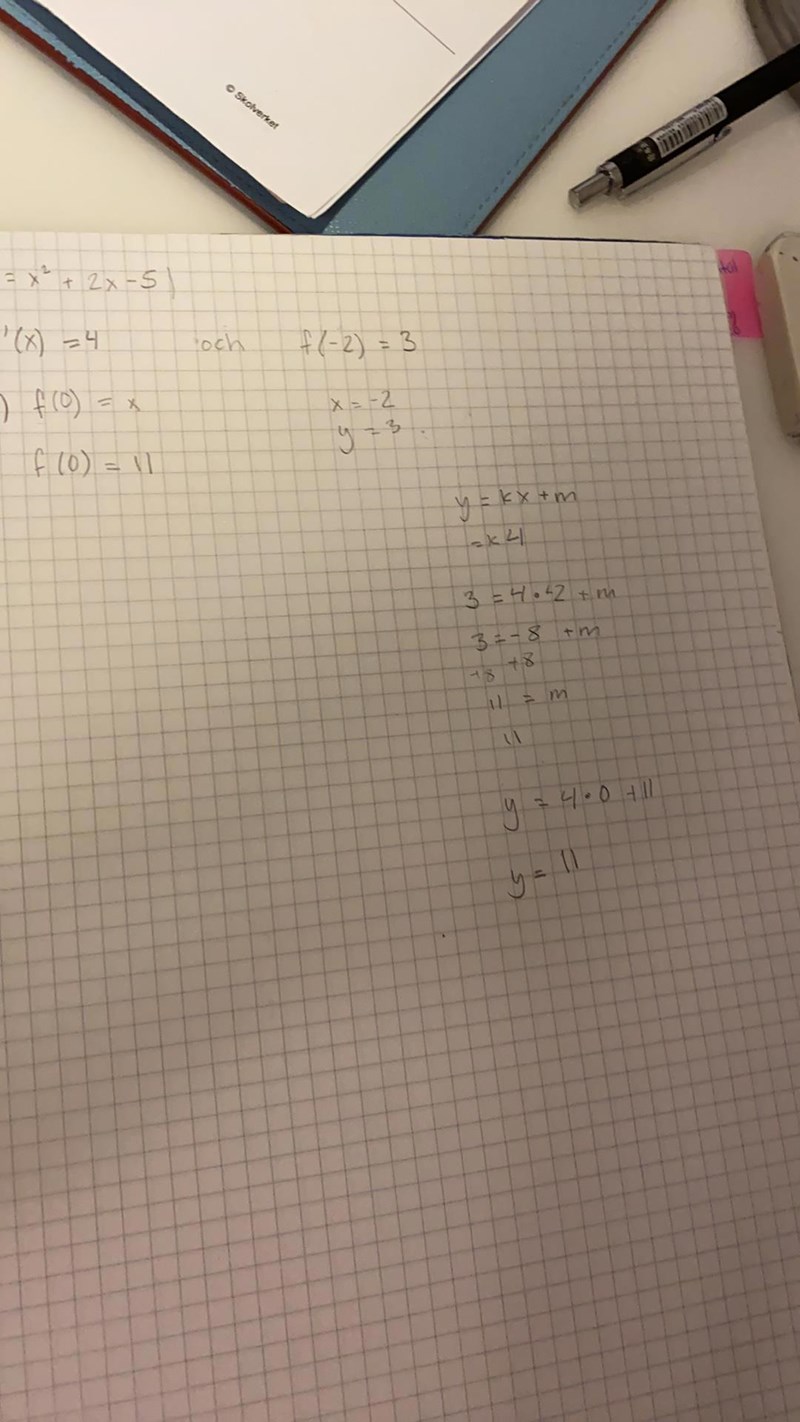 © Skolverket
= x² + 2x - 5
'(x) = 4 och f(-2) = 3
) f(0) = x
x = -2
y = 3
f(0) = 11
y = kx + m
= k 4
3 = 4 · -2 + m
3 = -8 + m
+8 +8
11 = m
11
y = 4 · 0 + 11
y = 11